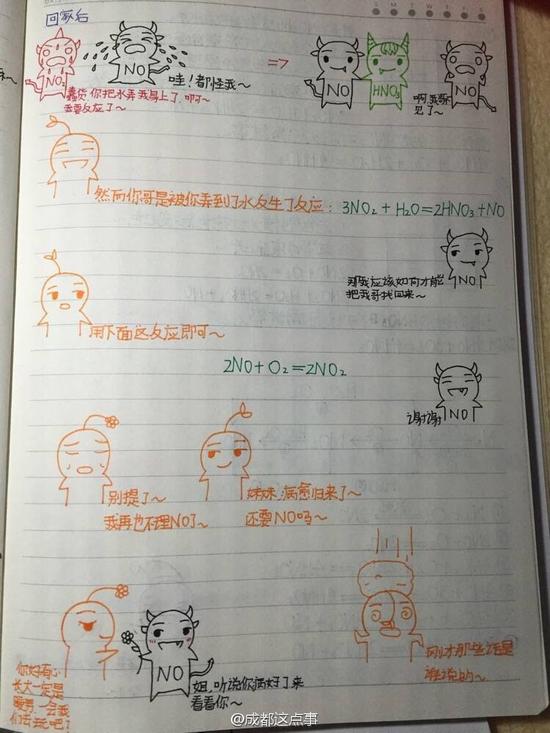 回家后
S M T W T F S
NO₂
NO
哇！都怪我～
=>
NO
HNO₃
NO
蠢货 你把水弄我身上了 啊～
我要反应了～
啊,我哥
见了～
然而你哥是被你弄到了水发生了反应：3NO₂+H₂O=2HNO₃+NO
NO
那我应该如何才能
把我哥找回来～
用下面这反应即可～
2NO+O₂=2NO₂
谢谢
NO
别提了～
我再也不理NO了～
妹妹,病愈归来了～
还要NO吗～
NO
你好有心
长大一定是
暖男,一会我
们去玩吧？
姐,听说你病好了来
看看你～
刚才那些话是
谁说的～
@成都这点事